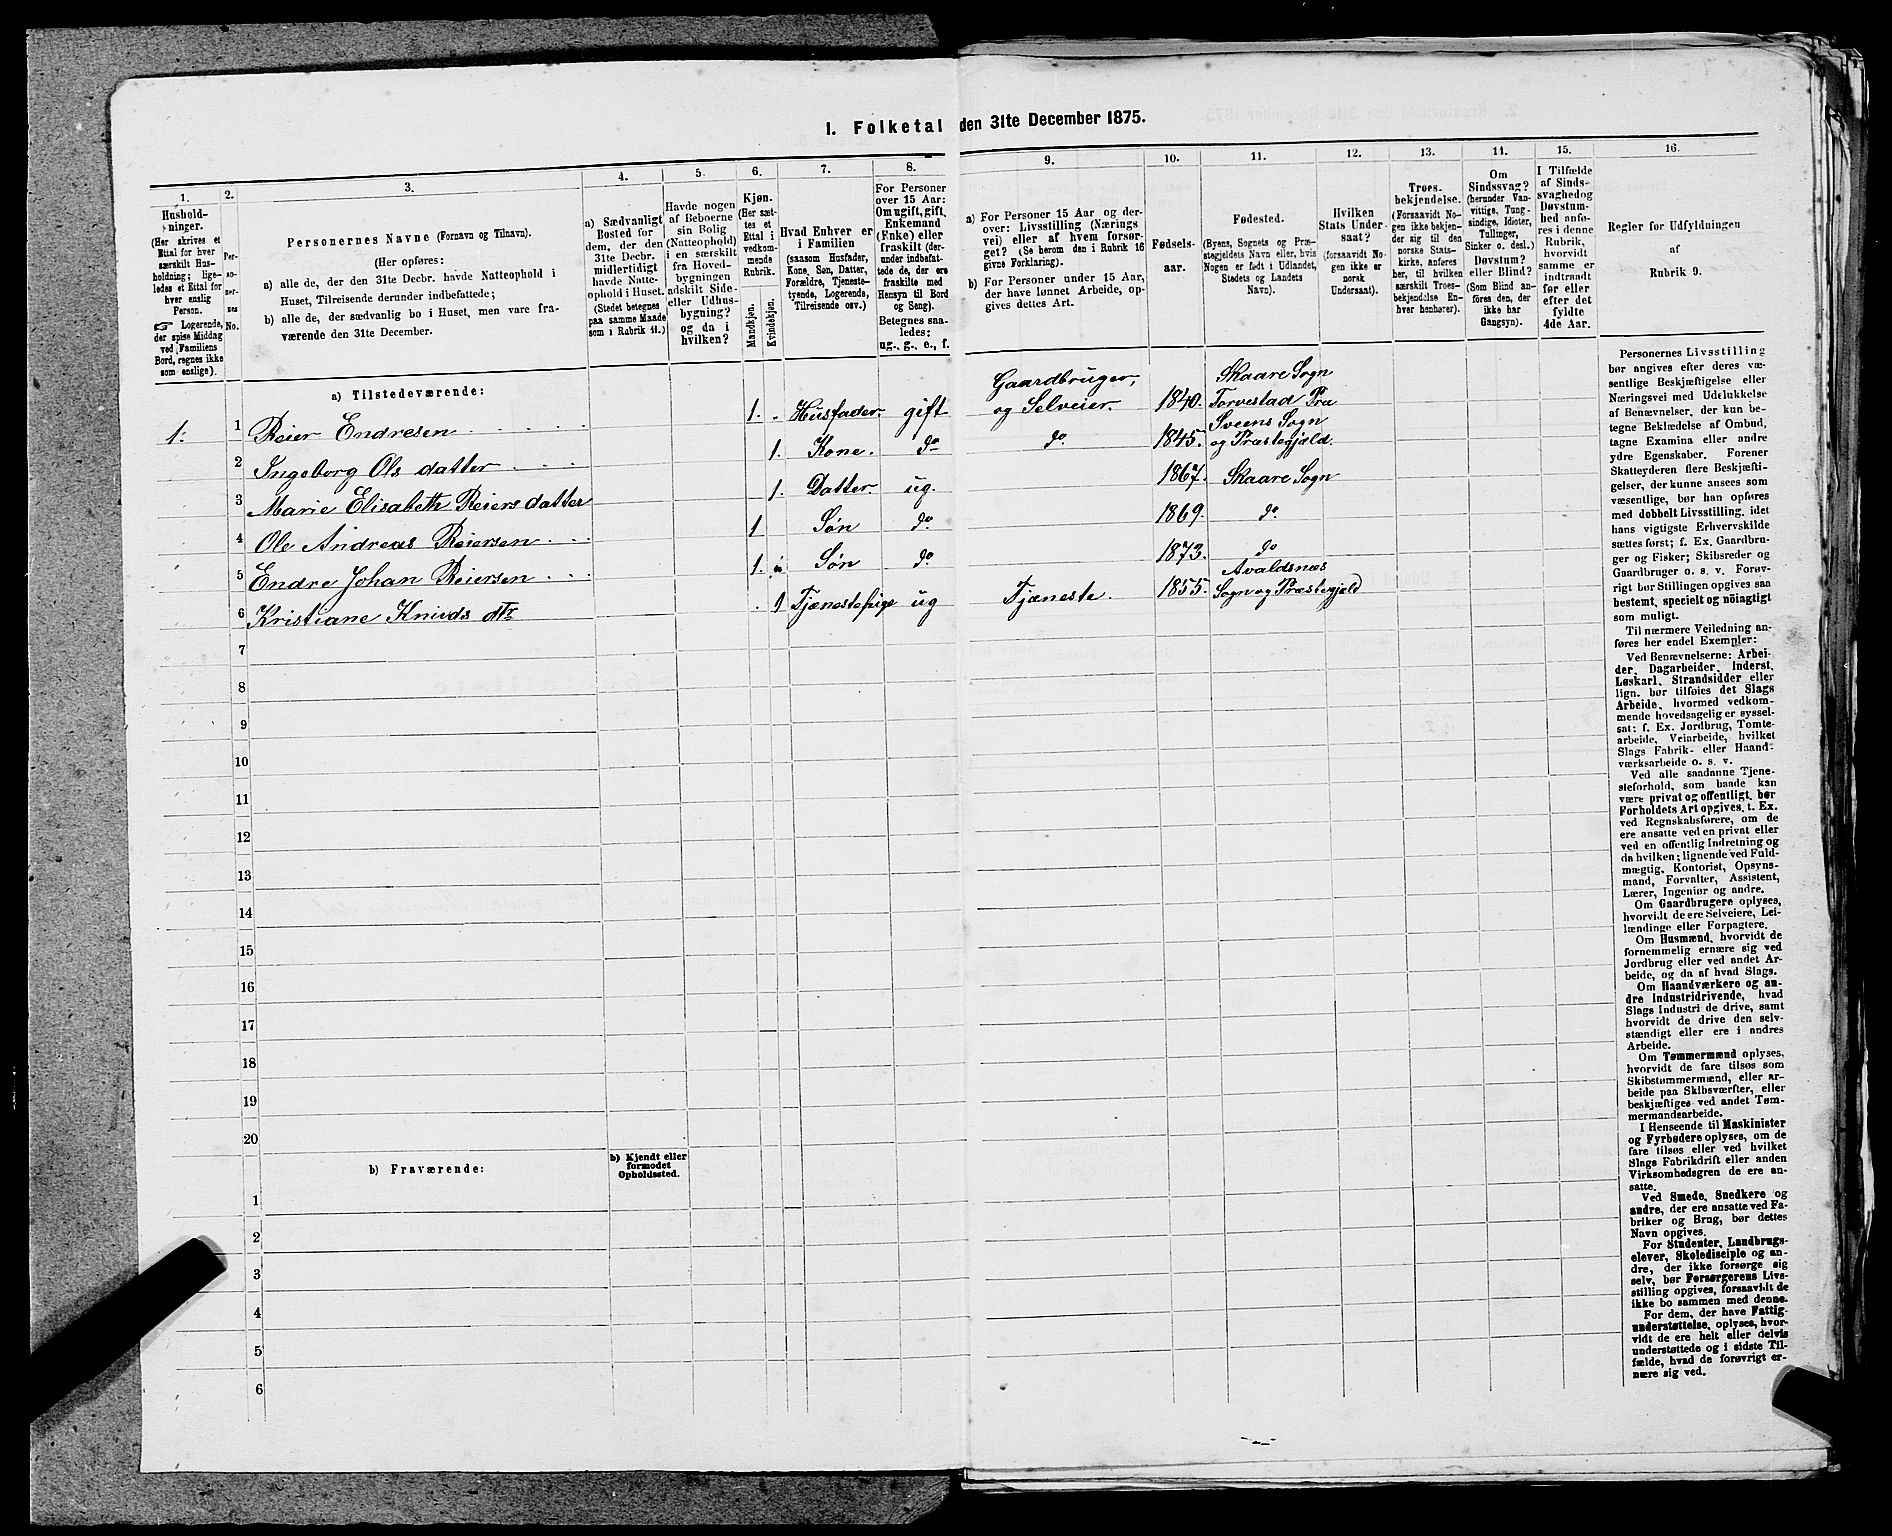 1. Folketal den 31te December 1875.
1.
Hushold-
ninger.
(Her skrives et
Ettal for hver
særskilt Hus-
holdning; lige-
ledes et Ettal for
hver enslig
Person.
☞ Logerende,
der spise Middag
ved Familiens
Bord, regnes ikke
som enslige).
2.
Per-
so-
ner-
nes
No.
3.
Personernes Navne (Fornavn og Tilnavn).
(Her opføres:
a) alle de, der den 31te Decbr. havde Natteophold i
Huset, Tilreisende derunder indbefattede;
b) alle de, der sædvanlig bo i Huset, men vare fra-
værende den 31te December.
4.
a) Sædvanligt
Bosted for
dem, der den
31te Decbr.
midlertidigt
havde Natte-
ophold i Huset.
(Stedet betegnes
paa samme Maade
som i Rubrik 11.)
5.
Havde nogen
af Beboerne
sin Bolig
(Natteophold)
i en særskilt
fra Hoved-
bygningen
adskilt Side-
eller Udhus-
bygning?
og da i
hvilken?
6.
Kjøn.
(Her sæt-
tes et
Ettal i
vedkom-
mende
Rubrik.
Mandkjøn.
Kvindekjøn.
7.
Hvad Enhver er
i Familien
(saasom Husfader,
Kone, Søn, Datter,
Forældre, Tjeneste-
tyende, Logerende,
Tilreisende osv.)
8.
For Personer
over 15 Aar:
Om ugift, gift,
Enkemand
(Enke) eller
fraskilt (der-
under indbefat-
tede de, der ere
fraskilte med
Hensyn til Bord
og Seng).
Betegnes saa-
ledes:
ug., g., e., f.
9.
a) For Personer 15 Aar og der-
over: Livsstilling (Nærings
vei) eller af hvem forsør-
get? (Se herom den i Rubrik 16
givne Forklaring).
b) For Personer under 15 Aar,
der have lønnet Arbeide, op-
gives dettes Art.
10.
Fødsels-
aar.
11.
Fødested.
(Byens, Sognets og Præ-
stegjeldets Navn eller, hvis
Nogen er født i Udlandet,
Stedets og Landets
Navn).
12.
Hvilken
Stats Under-
saat?
(forsaavidt No-
gen ikke er
norsk
Undersaat).
13.
Troes-
bekjendelse.
(Forsaavidt No-
gen ikke bekjen-
der sig til den
norske Stats-
kirke, anføres
her, til hvilken
særskilt Troes-
bekjendelse En-
hver henhører).
11.
Om
Sindssvag?
(herunder Van-
vittige, Tung-
sindige, Idioter,
Tullinger,
Sinker o. desl.)
Døvstum?
eller Blind?
(Som Blind an-
føres den, der
ikke har
Gangsyn).
15.
I Tilfælde
af Sinds-
svaghedog
Døvstum-
hed anfø-
res i denne
Rubrik,
hvorvidt
samme er
indtraadt
før eller
efter det
fyldte
4de Aar.
16.
Regler for Udfyldningen
af
Rubrik 9.
a) Tilstedeværende:
1. 1 Reier Endresen 1. Husfader gift Gaardbruger, og Selveier. 1840. Skaare Sogn Torvestad Præ
2 Ingeborg Olsdatter 1. Kone. do do. 1845. Sveens Sogn og Præstegjeld.
3 Marie Elisabeth Reiersdatter 1. Datter. ug. 1867. Skaare Sogn
4 Ole Andreas Reiersen 1 Søn do 1869. do.
5 Endre Johan Reiersen 1. Søn do 1873. do
6 Kristiane Knuds dtr 1 Tjenestepige ug Tjæneste. 1855. Avaldsnæs Sogn og Præstegjeld
7
8
9
10
11
12
13
14
15
16
17
18
19
20
b) Fraværende:
b) Kjendt eller
formodet
Opholdssted.
1
2
3
4
5
6
Personernes Livsstilling
bør angives efter deres væ-
sentlige Beskjæftigelse eller
Næringsvei med Udelukkelse
af Benævnelser, der kun be-
tegne Beklædelse af Ombud,
tagne Examina eller andre
ydre Egenskaber. Forener
Skatteyderen flere Beskjæfti-
gelser, der kunne ansees som
væsentlige, bør han opføres
med dobbelt Livsstilling, idet
hans vigtigste Erhvervskilde
sættes først; f. Ex. Gaardbru-
ger og Fisker; Skibsreder og
Gaardbruger o. s. v. Forøv-
rigt bør Stillingen opgives saa
bestemt, specielt og nöiagtigt
som muligt.
Til nærmere Veiledning an-
føres her endel Exempler:
Ved Benævnelserne: Arbei-
der, Dagarbeider, Inderst,
Løskarl, Strandsidder eller
lign. bør tilføies det Slags
Arbeide, hvormed vedkom-
mende hovedsagelig er syssel-
sat; f. Ex. Jordbrug, Tomte-
arbeide, Veiarbeide, hvilket
Slags Fabrik- eller Haand-
værksarbeide o. s. v.
Ved alle saadanne Tjene-
steforhold, som baade kan
være privat og offentligt, bør
Forholdets Art opgives, t. Ex.
ved Regnskabsførere, om de
ere ansatte ved en privat eller
ved en offentlig Indretning og
da hvilken; lignende ved Fuld-
mægtig, Kontorist, Opsyns-
mand, Forvalter, Assistent,
Lærer, Ingeniør og andre.
Om Gaardbrugere oplyses,
hvorvidt de ere Selveiere, Lei-
lændinge eller Forpagtere.
Om Husmænd, hvorvidt de
fornemmelig ernære sig ved
Jordbrug eller ved andet Ar-
beide, og da af hvad Slags.
Om Haandværkere og an-
dre Industridrivende, hvad
Slags Industri de drive, samt
hvorvidt de drive den selv-
stændigt eller ere i andres
Arbeide.
Om Tømmermænd oplyses,
hvorvidt de fare tilsøs som
Skibstømmermænd, eller ar-
beide paa Skibsværfter, eller
beskjæftiges ved andet Tøm-
mermandsarbeide.
I Henseende til Maskinister
og Fyrbødere oplyses, om de
fare tilsøs eller ved hvilket
Slags Fabrikdrift eller anden
Virksomhedsgren de ere an-
satte.
Ved Smede, Snedkere og
andre, der ere ansatte ved Fa-
briker og Brug, bør dettes
Navn opgives.
For Studenter, Landbrugs-
elever, Skoledisciple og an-
dre, der ikke forsørge sig
selv, bør Forsørgerens Livs-
stilling opgives, forsaavidt de
ikke bo sammen med denne.
For dem, der have Fattig-
understøttelse, oplyses, hvor-
vidt de ere helt eller delvis
understøttede og i sidste Til-
fælde, hvad de forøvrigt er-
nære sig ved.